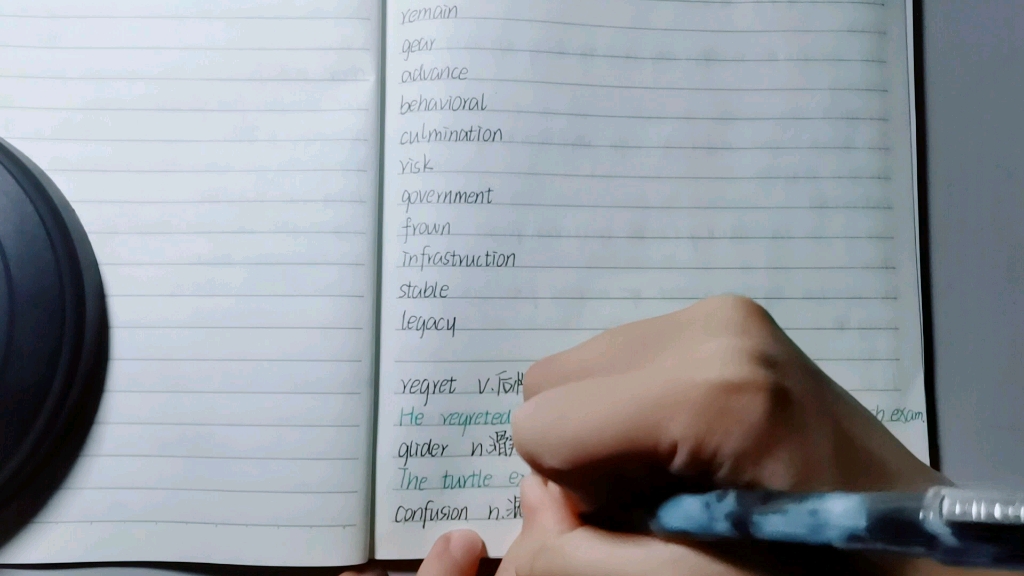 remain
gear
advance
behavioral
culmination
risk
government
frown
infrastruction
stable
legacy
regret v.后悔
He regreted exam.
glider n.滑
The turtle
confusion n.混